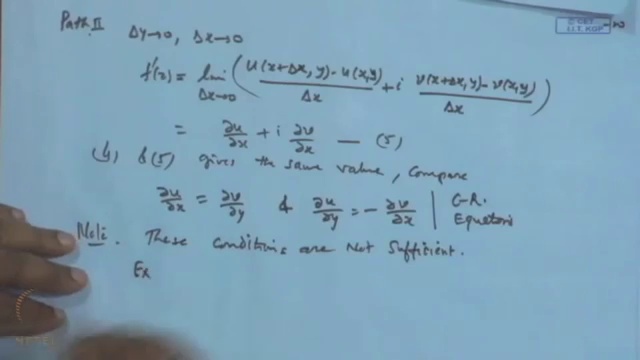 Path II Δy→0, Δx→0
f'(z) = lim Δx→0 ( u(x+Δx, y) - u(x,y) / Δx + i v(x+Δx, y) - v(x,y) / Δx )
= ∂u/∂x + i ∂v/∂x — (5)
(4) &(5) gives the same value, Compare
∂u/∂x = ∂v/∂y & ∂u/∂y = - ∂v/∂x | C-R. Equations
Note. These conditions are Not Sufficient.
Ex
© CET
I.I.T. KGP
NPTEL